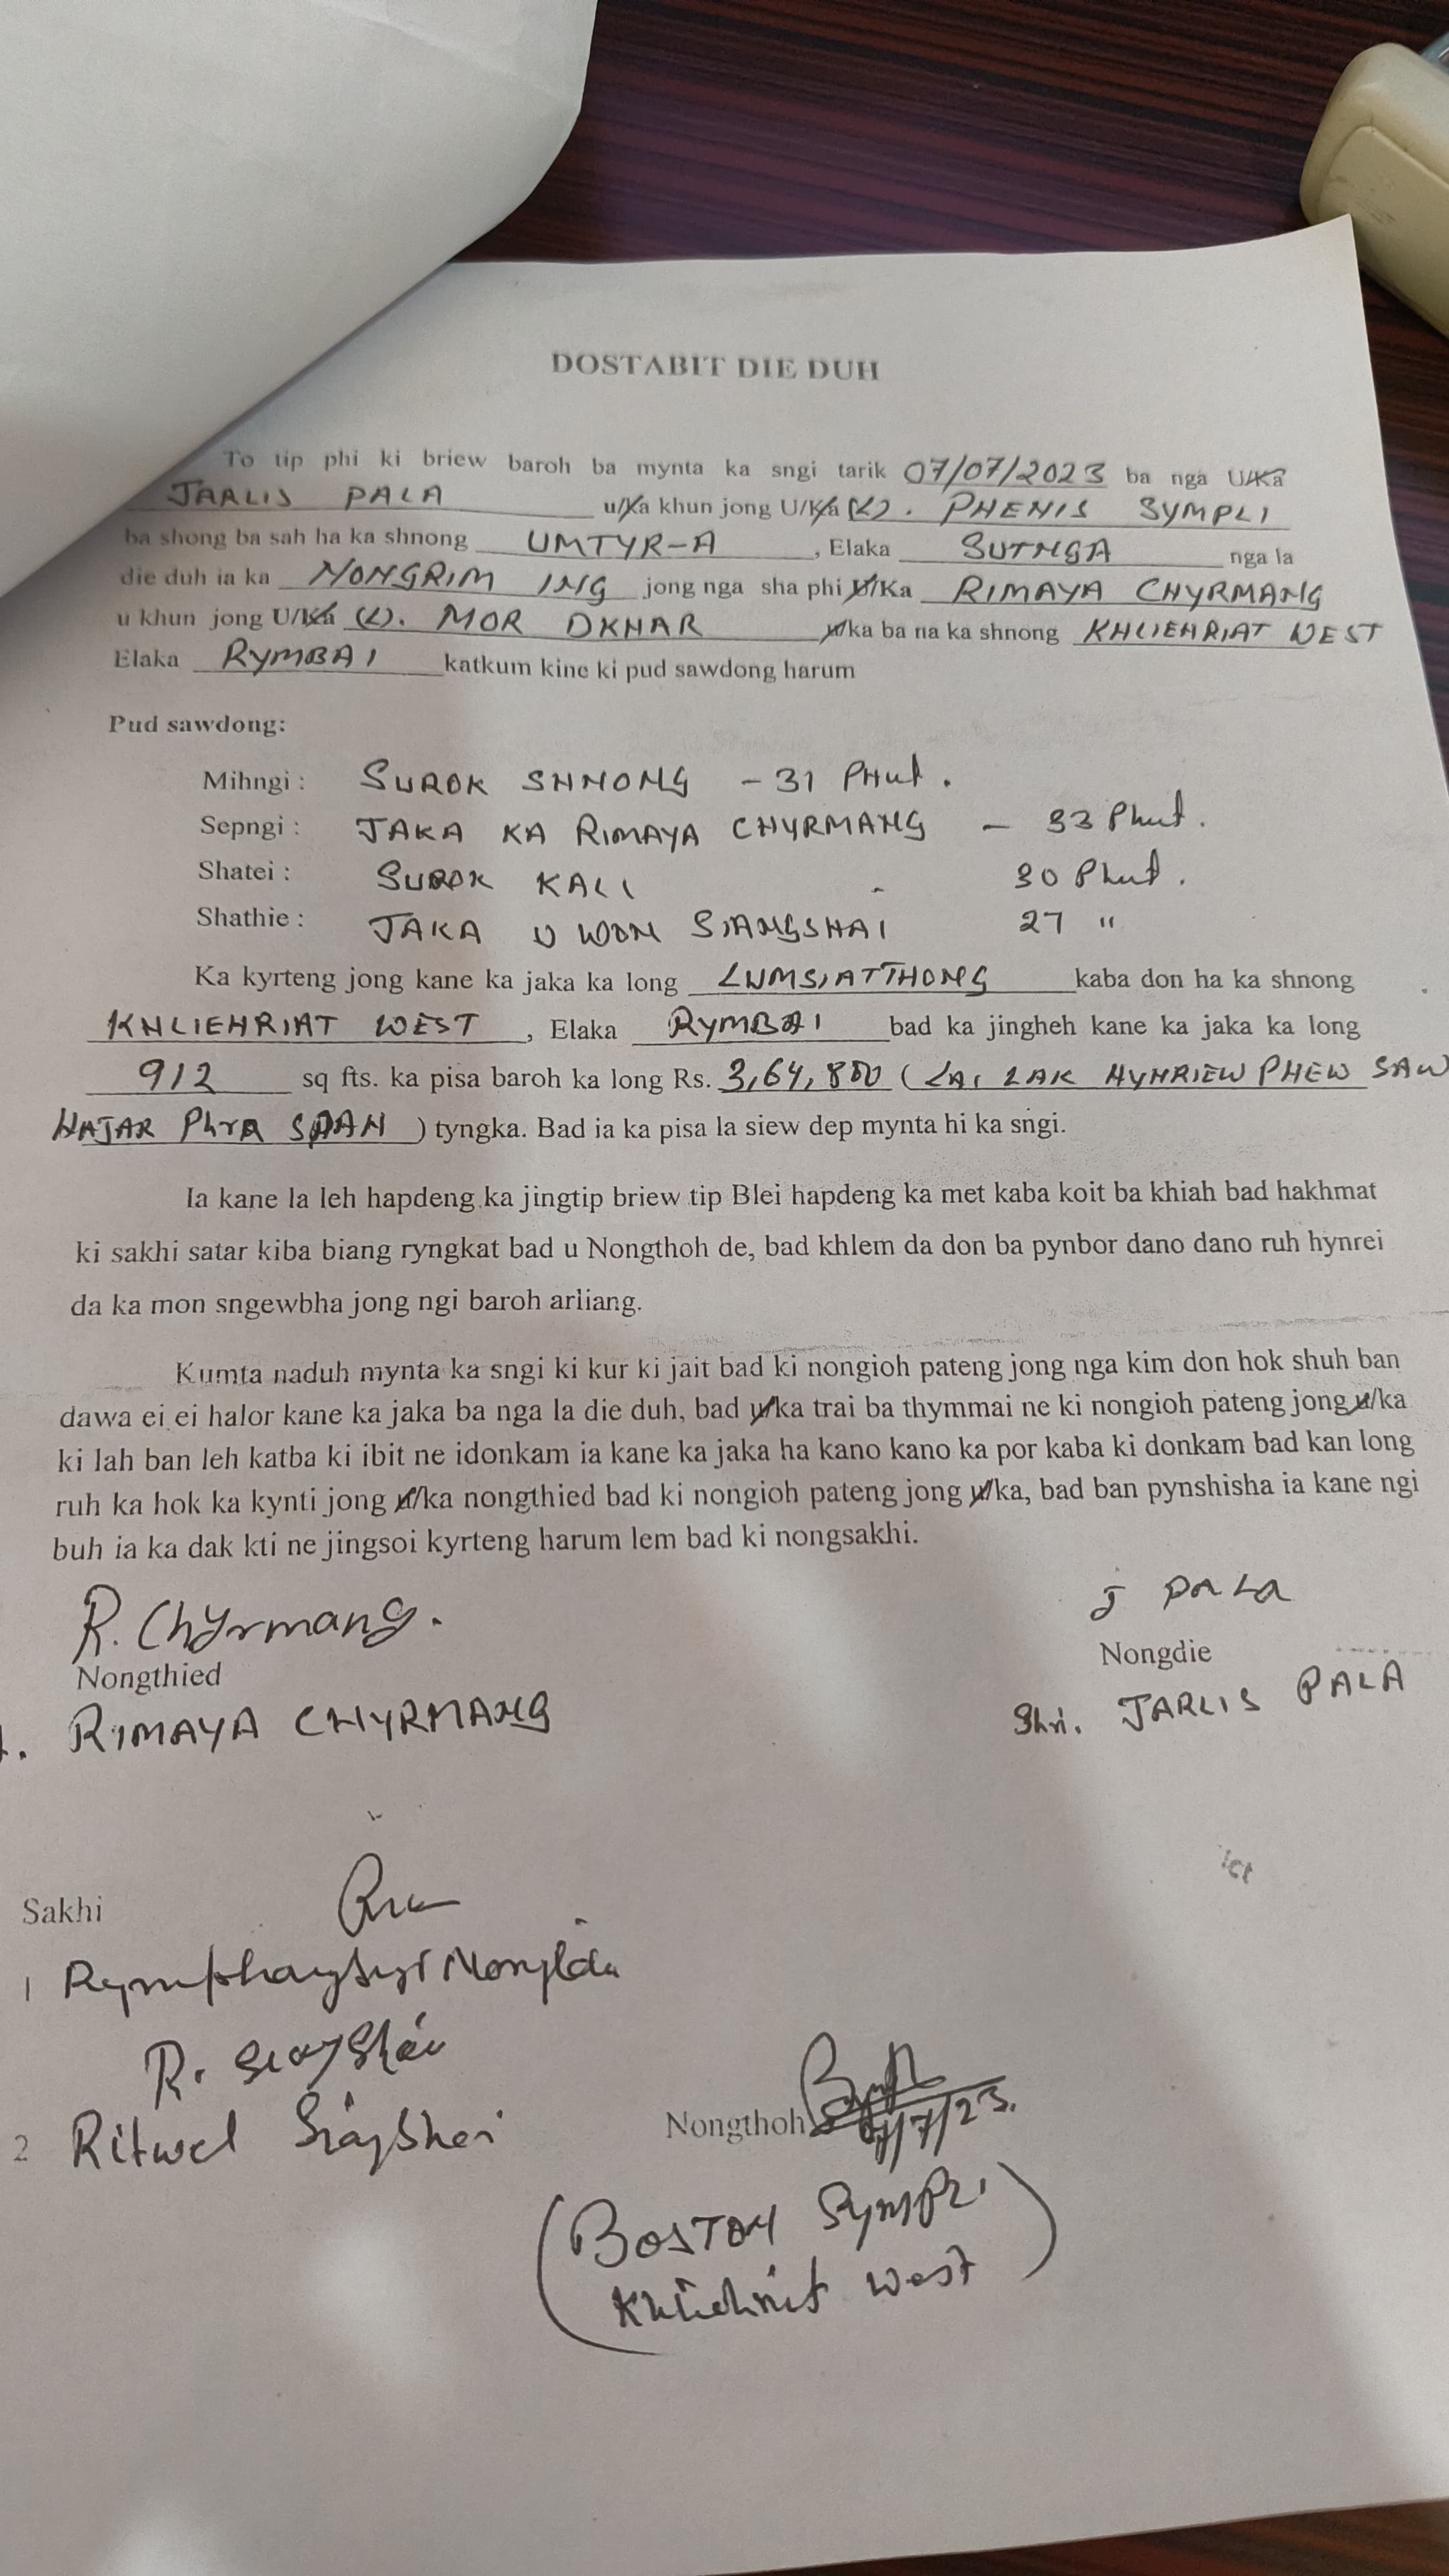 DOSTABIT DIE DUH
To tip phi ki briew baroh ba mynta ka sngi tarik 07/07/2023 ba nga U/Ka
JARLIS PALA u/ka khun jong U/Ka (L). PHENIS SYMPLI
ba shong ba sah ha ka shnong UMTYR-A, Elaka SUTNGA nga la
die duh ia ka NONGRIM ING jong nga sha phi U/Ka RIMAYA CHYRMANG
u khun jong U/Ka (L). MOR DKHAR u/ka ba na ka shnong KHLIEHRIAT WEST
Elaka RYMBAI katkum kine ki pud sawdong harum
Pud sawdong:
Mihngi : SUROK SHNONG - 31 Phut.
Sepngi : JAKA KA RIMAYA CHYRMANG - 33 Phut.
Shatei : SUROK KALI - 30 Phut.
Shathie : JAKA U WON SIANGSHAI 27 "
Ka kyrteng jong kane ka jaka ka long LUMSIATTHONG kaba don ha ka shnong
KHLIEHRIAT WEST, Elaka RYMBAI bad ka jingheh kane ka jaka ka long
912 sq fts. ka pisa baroh ka long Rs. 3,64,800 (LAI LAK HYNRIEW PHEW SAW
HAJAR PhrA SPAH) tyngka. Bad ia ka pisa la siew dep mynta hi ka sngi.
Ia kane la leh hapdeng ka jingtip briew tip Blei hapdeng ka met kaba koit ba khiah bad hakhmat
ki sakhi satar kiba biang ryngkat bad u Nongthoh de, bad khlem da don ba pynbor dano dano ruh hynrei
da ka mon sngewbha jong ngi baroh arliang.
Kumta naduh mynta ka sngi ki kur ki jait bad ki nongioh pateng jong nga kim don hok shuh ban
dawa ei ei halor kane ka jaka ba nga la die duh, bad u/ka trai ba thymmai ne ki nongioh pateng jong u/ka
ki lah ban leh katba ki ibit ne idonkam ia kane ka jaka ha kano kano ka por kaba ki donkam bad kan long
ruh ka hok ka kynti jong u/ka nongthied bad ki nongioh pateng jong u/ka, bad ban pynshisha ia kane ngi
buh ia ka dak kti ne jingsoi kyrteng harum lem bad ki nongsakhi.
R. Chyrmang.
Nongthied
RIMAYA CHYRMANG
J PALA
Nongdie
Shri. JARLIS PALA
Sakhi
1
R.
2 Ritwel Siangshai
Nongthoh 7/7/23.
(BOSTON SYMPLI
Khliehriat West)